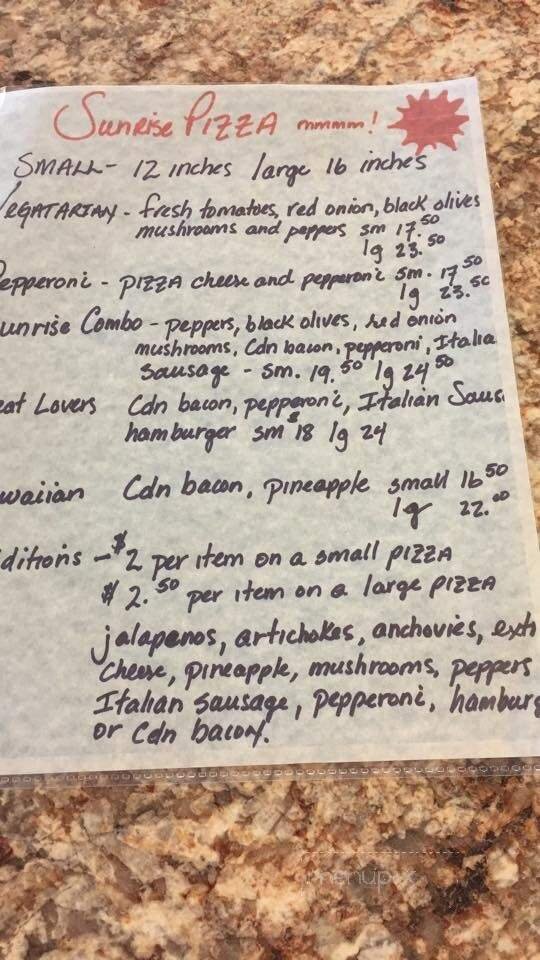 Sunrise PIZZA mmmm!
SMALL- 12 inches large 16 inches
VEGATARIAN - fresh tomatoes, red onion, black olives
mushrooms and peppers sm 17.50
lg 23.50
epperoni - PIZZA cheese and pepperoni sm. 17.50
lg 23.50
unrise Combo - peppers, black olives, red onion
mushrooms, Cdn bacon, pepperoni, Italia
Sausage - sm. 19.50 lg 24.50
eat Lovers Cdn bacon, pepperoni, Italian Saus
hamburger sm $18 lg 24
waiian Cdn bacon, pineapple small 16.50
lg 22.00
ditions - $2 per item on a small PIZZA
$2.50 per item on a large PIZZA
jalapenos, artichokes, anchovies, ext
Cheese, pineapple, mushrooms, peppers
Italian Sausage, Pepperoni, hamburg
or Cdn bacon.
menupix